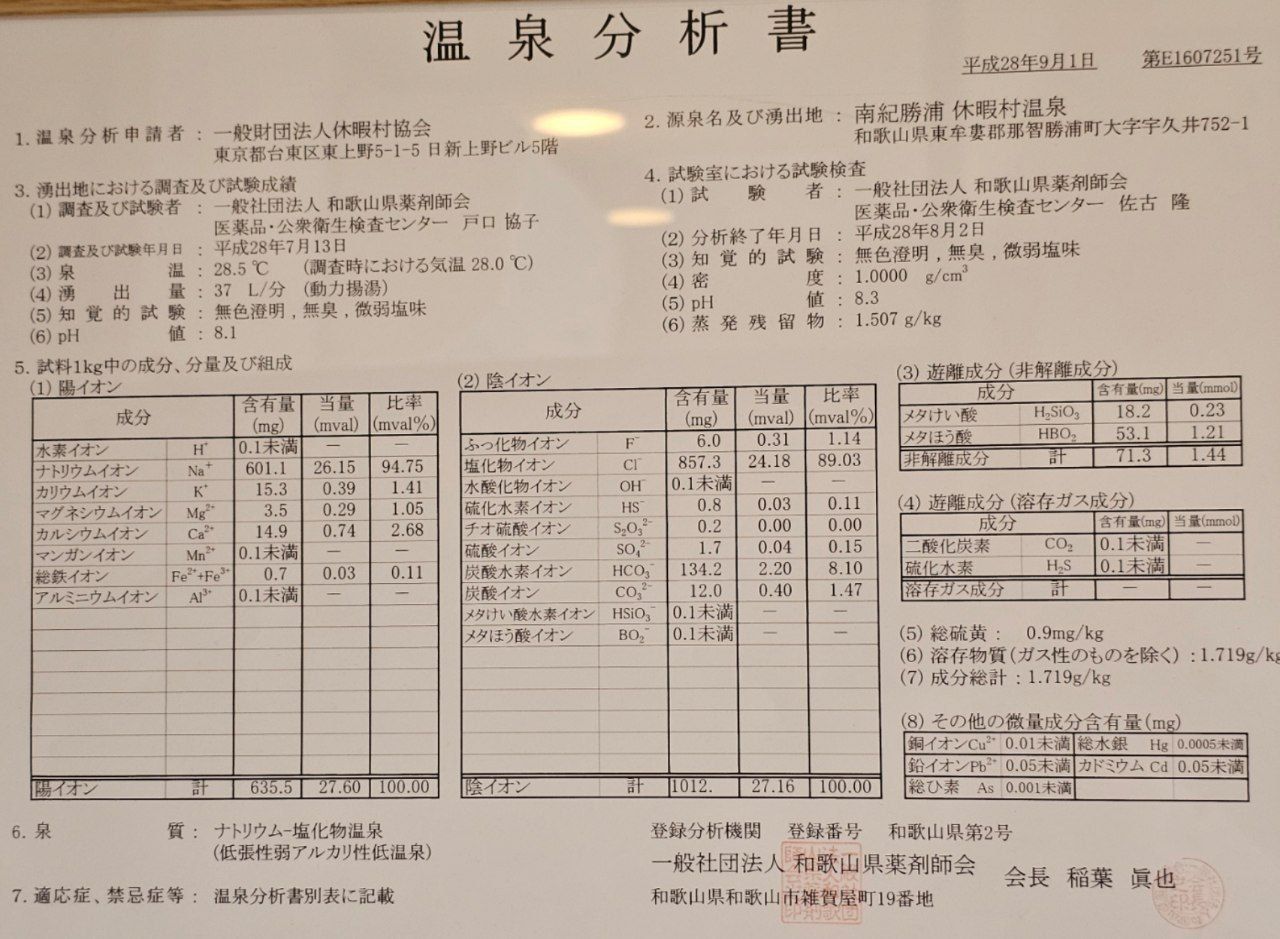 温泉分析書
平成28年9月1日 第E1607251号
1. 温泉分析申請者 : 一般財団法人休暇村協会
東京都台東区東上野5-1-5 日新上野ビル5階
2. 源泉名及び湧出地 : 南紀勝浦 休暇村温泉
和歌山県東牟婁郡那智勝浦町大字宇久井752-1
3. 湧出地における調査及び試験成績
(1) 調査及び試験者 : 一般社団法人 和歌山県薬剤師会
医薬品・公衆衛生検査センター 戸口 協子
(2) 調査及試験年月日 : 平成28年7月13日
(3) 泉温 : 28.5 ℃ (調査時における気温 28.0 ℃)
(4) 湧出量 : 37 L/分 (動力揚湯)
(5) 知覚的試験 : 無色澄明 , 無臭 , 微弱塩味
(6) pH値 : 8.1
4. 試験室における試験検査
(1) 試験者 : 一般社団法人 和歌山県薬剤師会
医薬品・公衆衛生検査センター 佐古 隆
(2) 分析終了年月日 : 平成28年8月2日
(3) 知覚的試験 : 無色澄明 , 無臭 , 微弱塩味
(4) 密度 : 1.0000 g/cm³
(5) pH値 : 8.3
(6) 蒸発残留物 : 1.507 g/kg
5. 試料1kg中の成分、分量及び組成
(1) 陽イオン
成分 含有量(mg) 当量(mval) 比率(mval%)
水素イオン H⁺ 0.1未満 — —
ナトリウムイオン Na⁺ 601.1 26.15 94.75
カリウムイオン K⁺ 15.3 0.39 1.41
マグネシウムイオン Mg²⁺ 3.5 0.29 1.05
カルシウムイオン Ca²⁺ 14.9 0.74 2.68
マンガンイオン Mn²⁺ 0.1未満 — —
総鉄イオン Fe²⁺+Fe³⁺ 0.7 0.03 0.11
アルミニウムイオン Al³⁺ 0.1未満 — —
陽イオン 計 635.5 27.60 100.00
(2) 陰イオン
成分 含有量(mg) 当量(mval) 比率(mval%)
ふっ化物イオン F⁻ 6.0 0.31 1.14
塩化物イオン Cl⁻ 857.3 24.18 89.03
水酸化物イオン OH⁻ 0.1未満 — —
硫化水素イオン HS⁻ 0.8 0.03 0.11
チオ硫酸イオン S₂O₃²⁻ 0.2 0.00 0.00
硫酸イオン SO₄²⁻ 1.7 0.04 0.15
炭酸水素イオン HCO₃⁻ 134.2 2.20 8.10
炭酸イオン CO₃²⁻ 12.0 0.40 1.47
メタけい酸水素イオン HSiO₃⁻ 0.1未満 — —
メタほう酸イオン BO₂⁻ 0.1未満 — —
陰イオン 計 1012. 27.16 100.00
(3) 遊離成分 (非解離成分)
成分 含有量(mg) 当量(mmol)
メタけい酸 H₂SiO₃ 18.2 0.23
メタほう酸 HBO₂ 53.1 1.21
非解離成分 計 71.3 1.44
(4) 遊離成分 (溶存ガス成分)
成分 含有量(mg) 当量(mmol)
二酸化炭素 CO₂ 0.1未満 —
硫化水素 H₂S 0.1未満 —
溶存ガス成分 計 — —
(5) 総硫黄 : 0.9mg/kg
(6) 溶存物質 (ガス性のものを除く) : 1.719g/kg
(7) 成分総計 : 1.719g/kg
(8) その他の微量成分含有量(mg)
銅イオンCu²⁺ 0.01未満 総水銀 Hg 0.0005未満
鉛イオンPb²⁺ 0.05未満 カドミウム Cd 0.05未満
総ひ素 As 0.001未満
6. 泉質 : ナトリウム-塩化物温泉
(低張性弱アルカリ性低温泉)
7. 適応症、禁忌症等 : 温泉分析書別表に記載
登録分析機関 登録番号 和歌山県第2号
一般社団法人 和歌山県薬剤師会 会長 稲葉 眞也
和歌山県和歌山市雑賀屋町19番地